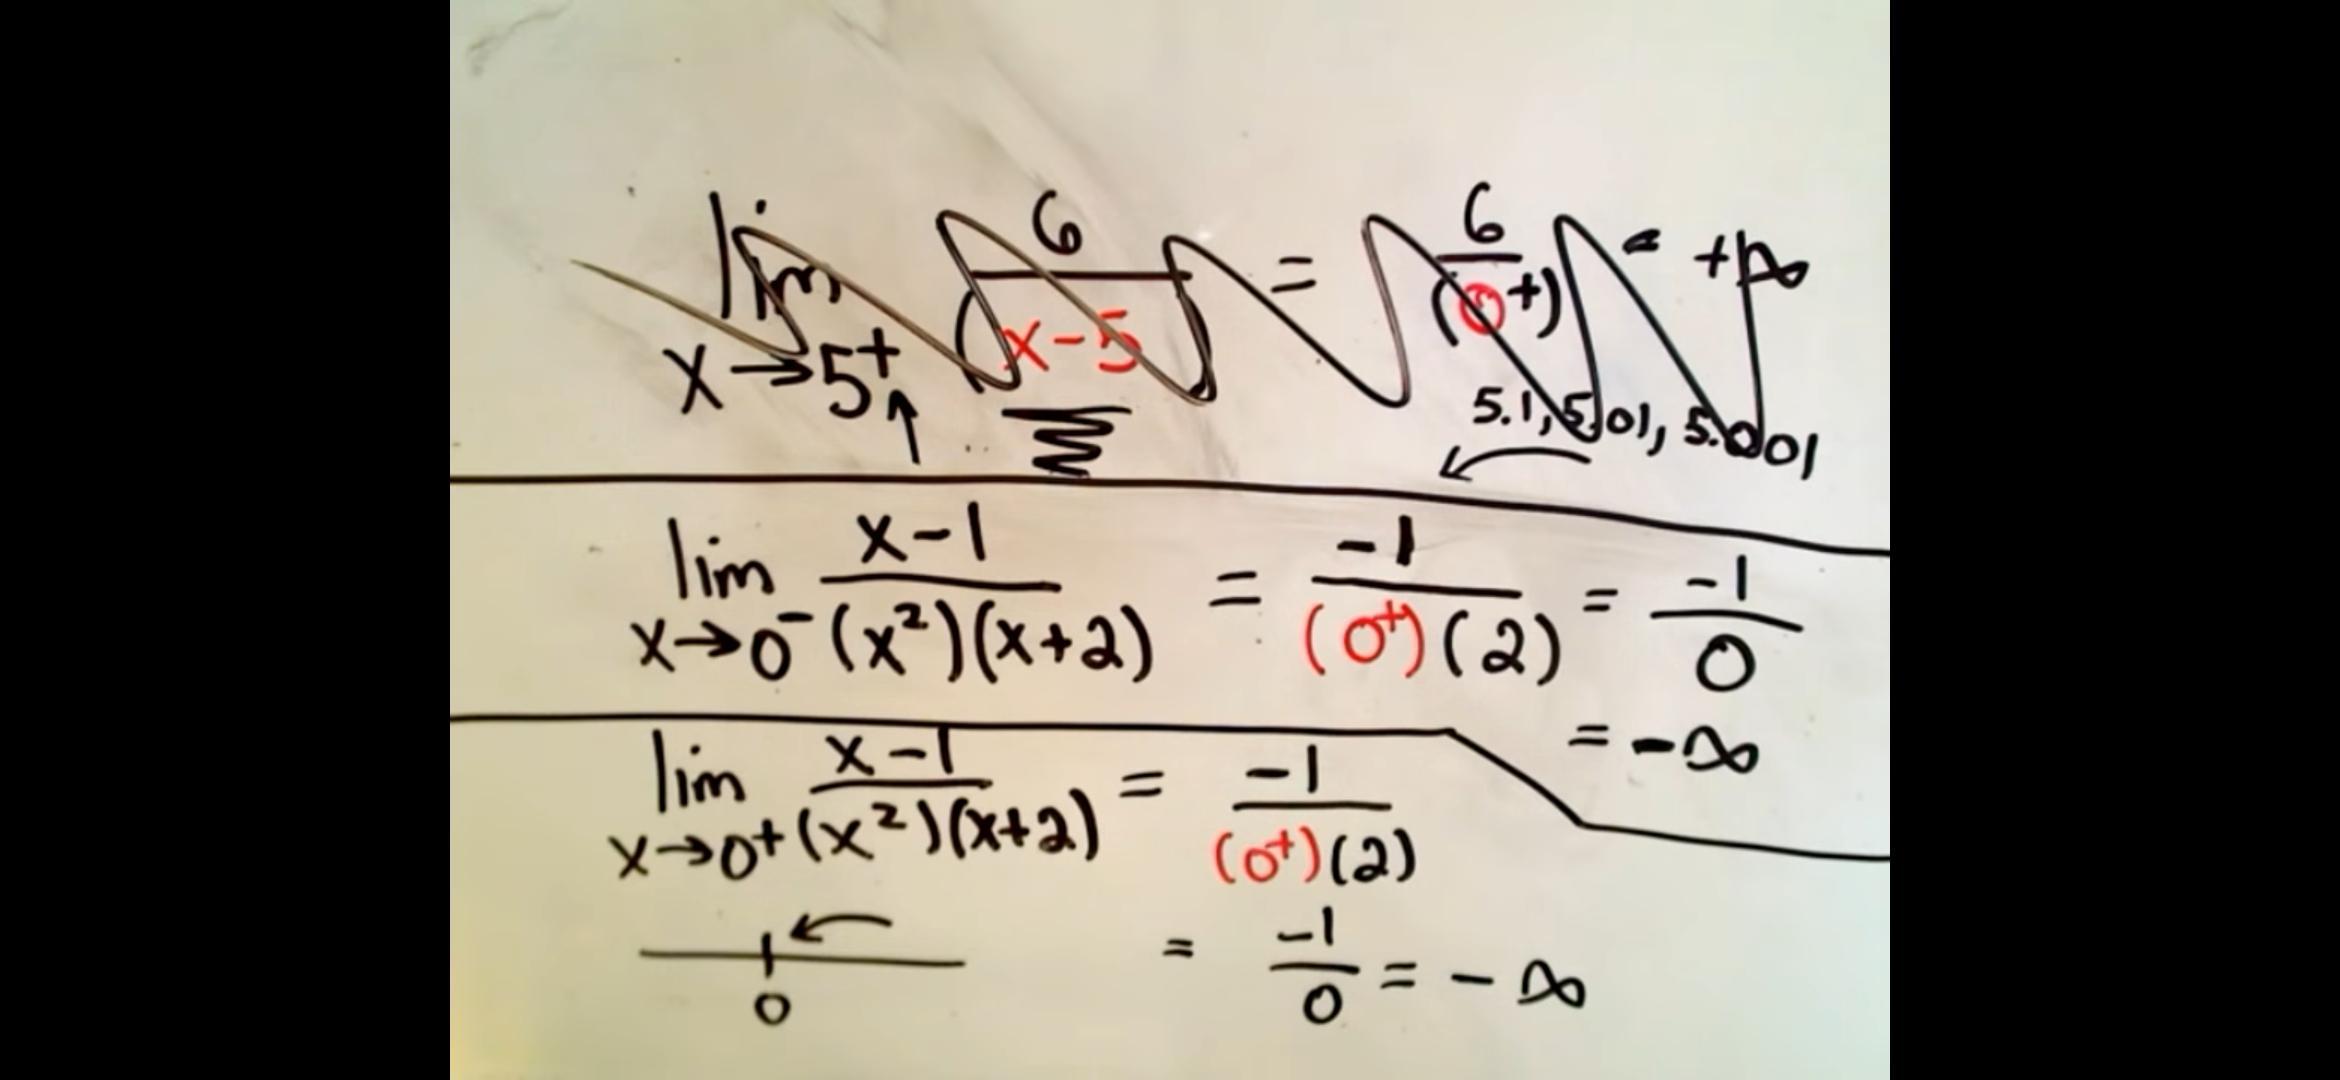 lim x→5⁺ 6/(x-5) = 6/(0⁺) = +∞
5.1, 5.01, 5.001
lim x→0⁻ x-1/(x²)(x+2) = -1/(0⁺)(2) = -1/0
= -∞
lim x→0⁺ x-1/(x²)(x+2) = -1/(0⁺)(2)
= -1/0 = -∞
0